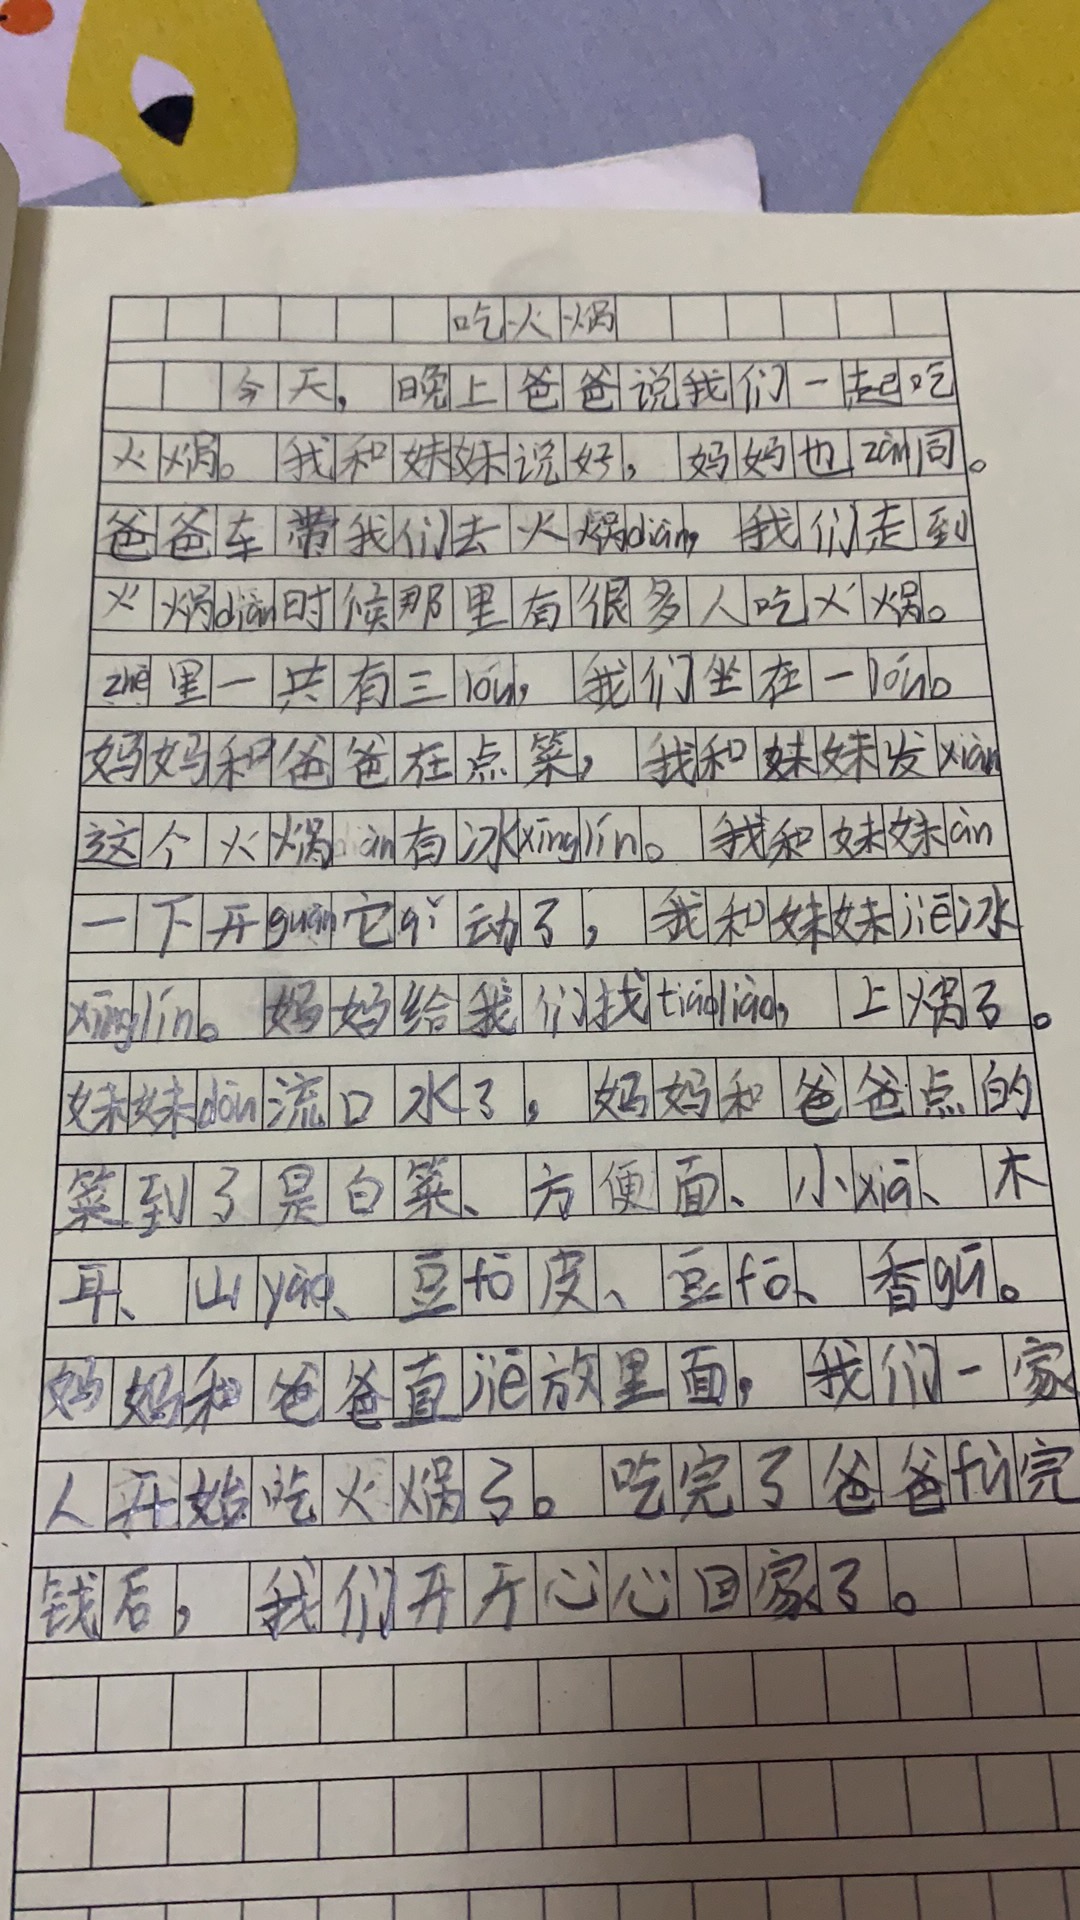 吃火锅
今天，晚上爸爸说我们一起吃
火锅。我和妹妹说好，妈妈也zàn同。
爸爸车带我们去火锅diàn，我们走到
火锅diàn时候那里有很多人吃火锅。
zhè里一共有三lóu，我们坐在一lóu。
妈妈和爸爸在点菜，我和妹妹发xiàn
这个火锅diàn有冰xīnglín。我和妹妹àn
一下开guān它qǐ动了，我和妹妹jiē冰
xīnglín。妈妈给我们找tiáoliào，上锅了。
妹妹dōu流口水了，妈妈和爸爸点的
菜到了是白菜、方便面、小xiā、木
耳、山yào、豆fǔ皮、豆fǔ、香gū。
妈妈和爸爸直jiē放里面，我们一家
人开始吃火锅了。吃完了爸爸fù完
钱后，我们开开心心回家了。